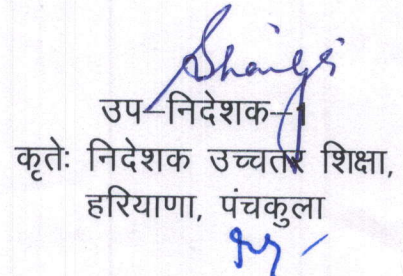 उप-निदेशक-1
कृतेः निदेशक उच्चतर शिक्षा,
हरियाणा, पंचकुला